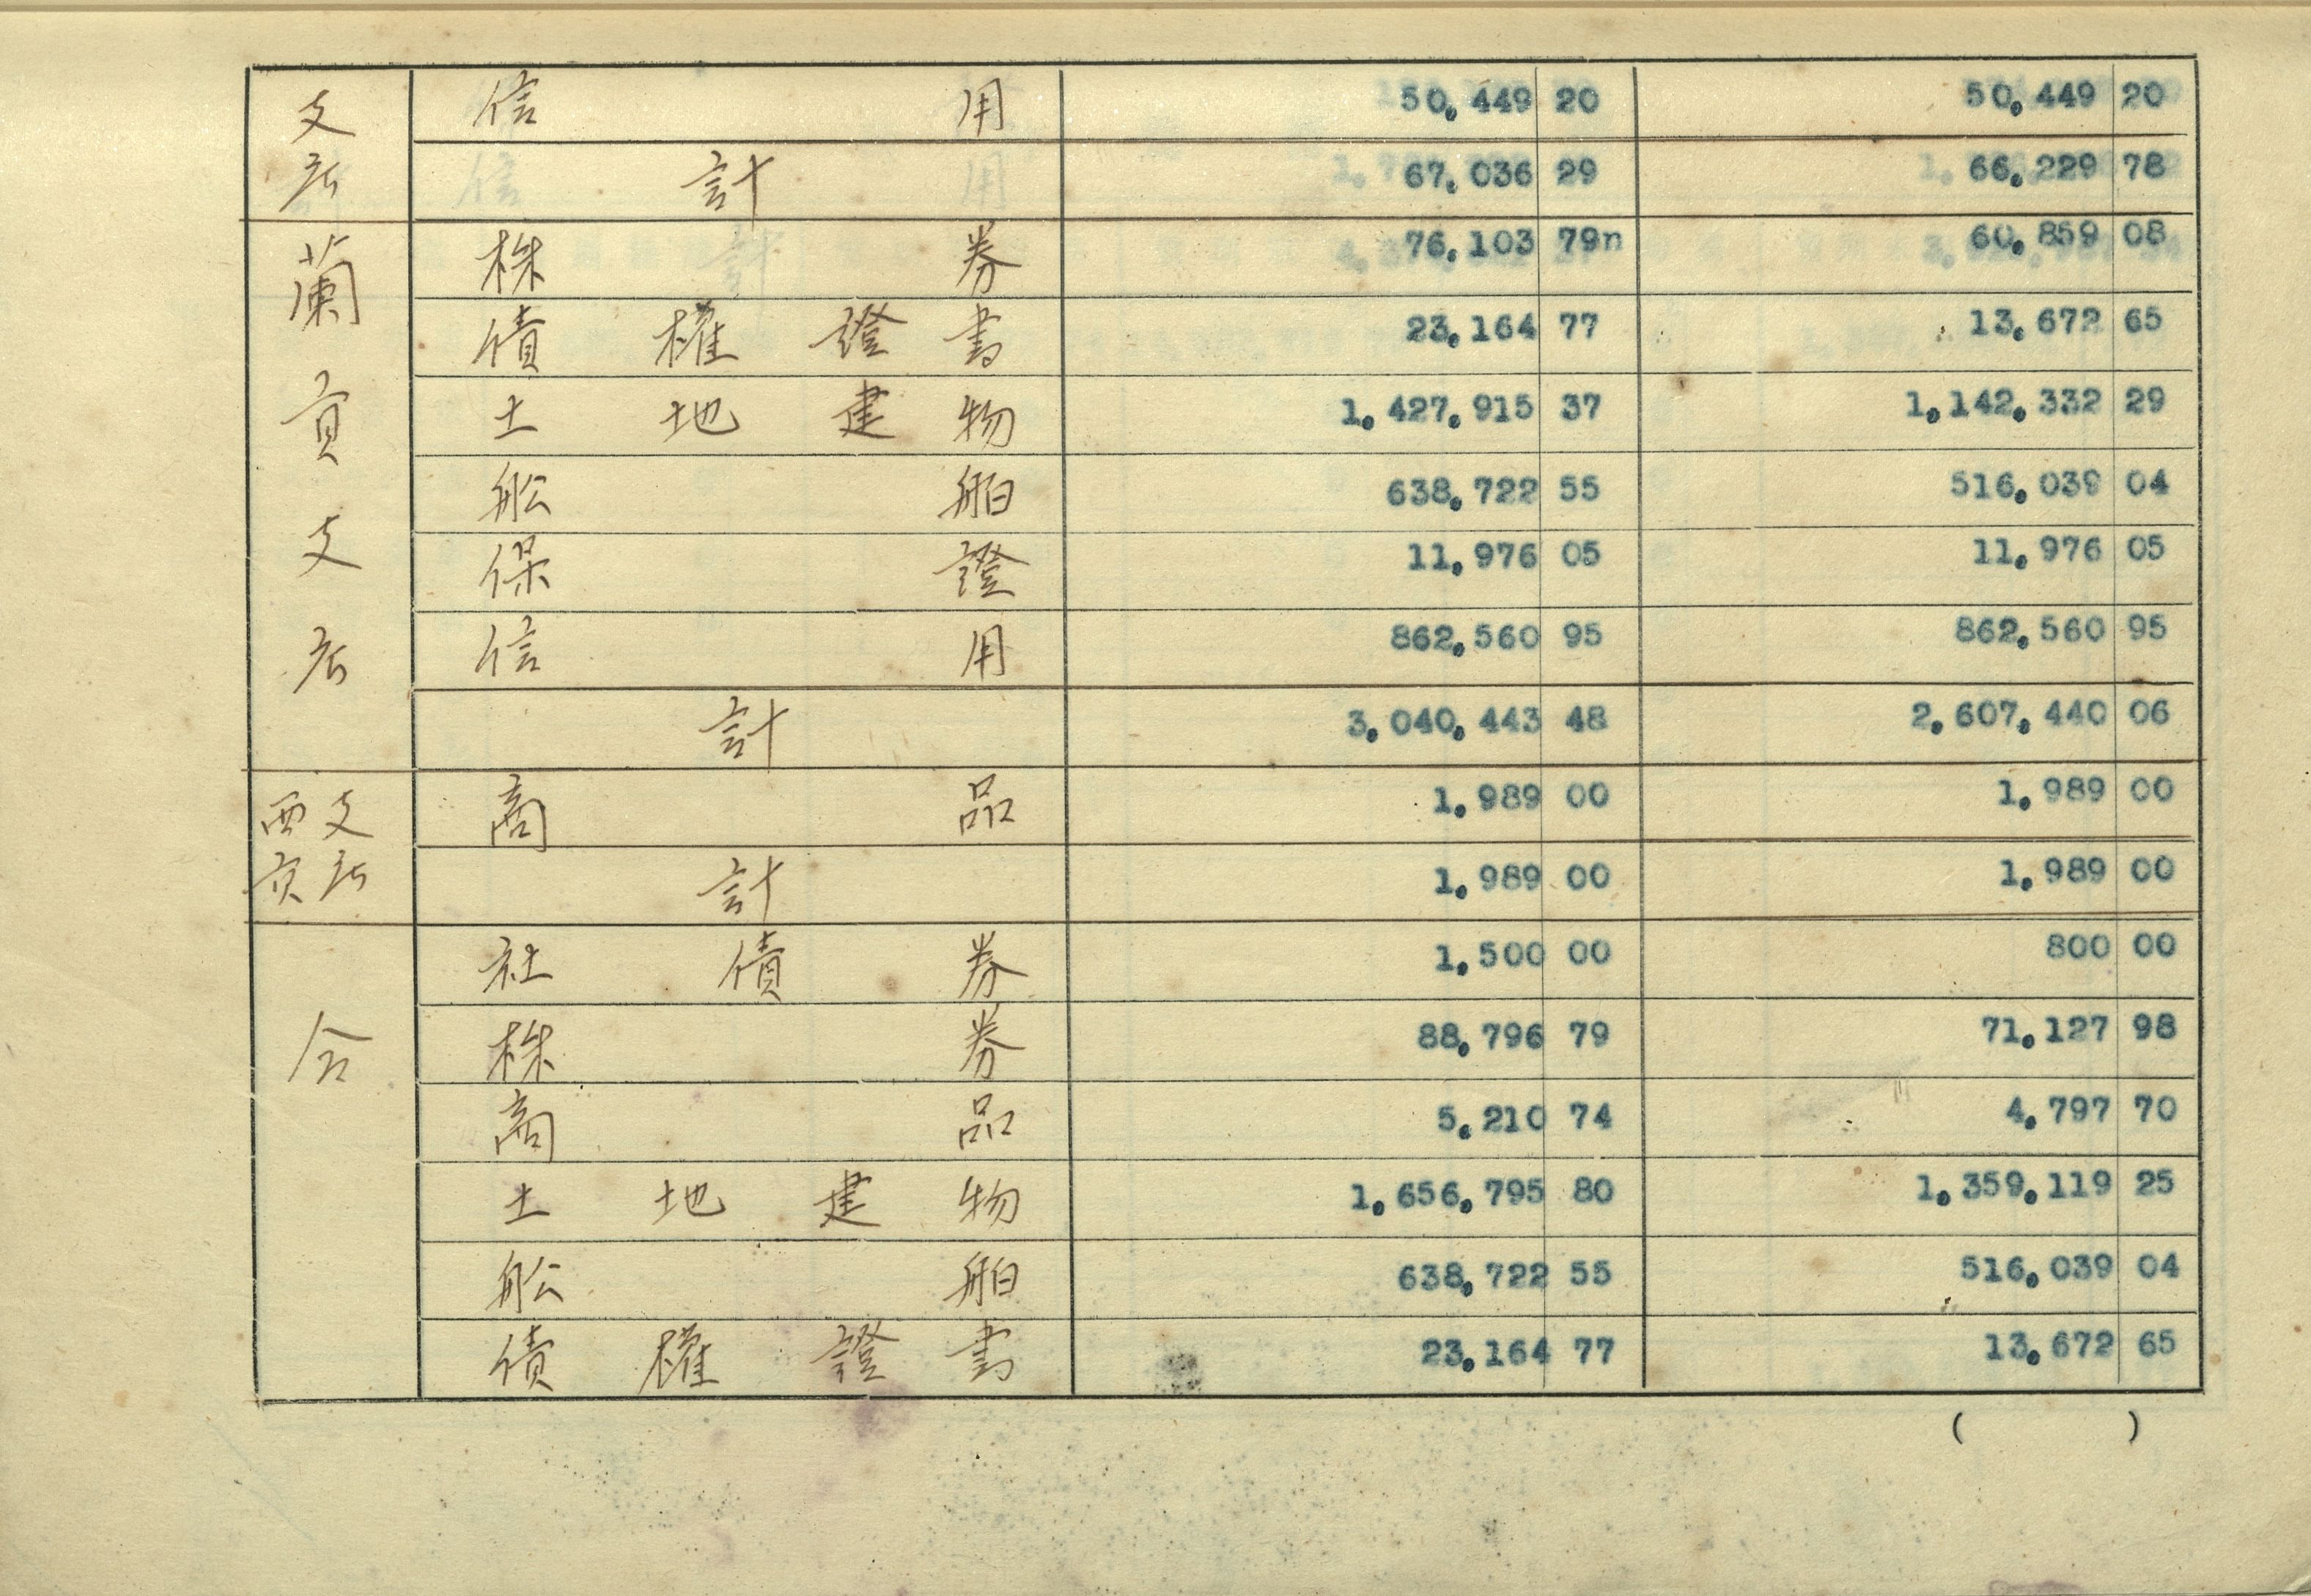 支店 信用 50,449 20 50,449 20
計 67,036 29 66,229 78
蘭貢支店 株券 76,103 79n 60,859 08
債權證書 23,164 77 13,672 65
土地建物 1,427,915 37 1,142,332 29
船舶 638,722 55 516,039 04
保證 11,976 05 11,976 05
信用 862,560 95 862,560 95
計 3,040,443 48 2,607,440 06
西貢支店 商品 1,989 00 1,989 00
計 1,989 00 1,989 00
合 社債券 1,500 00 800 00
株券 88,796 79 71,127 98
商品 5,210 74 4,797 70
土地建物 1,656,795 80 1,359,119 25
船舶 638,722 55 516,039 04
債權證書 23,164 77 13,672 65
( )